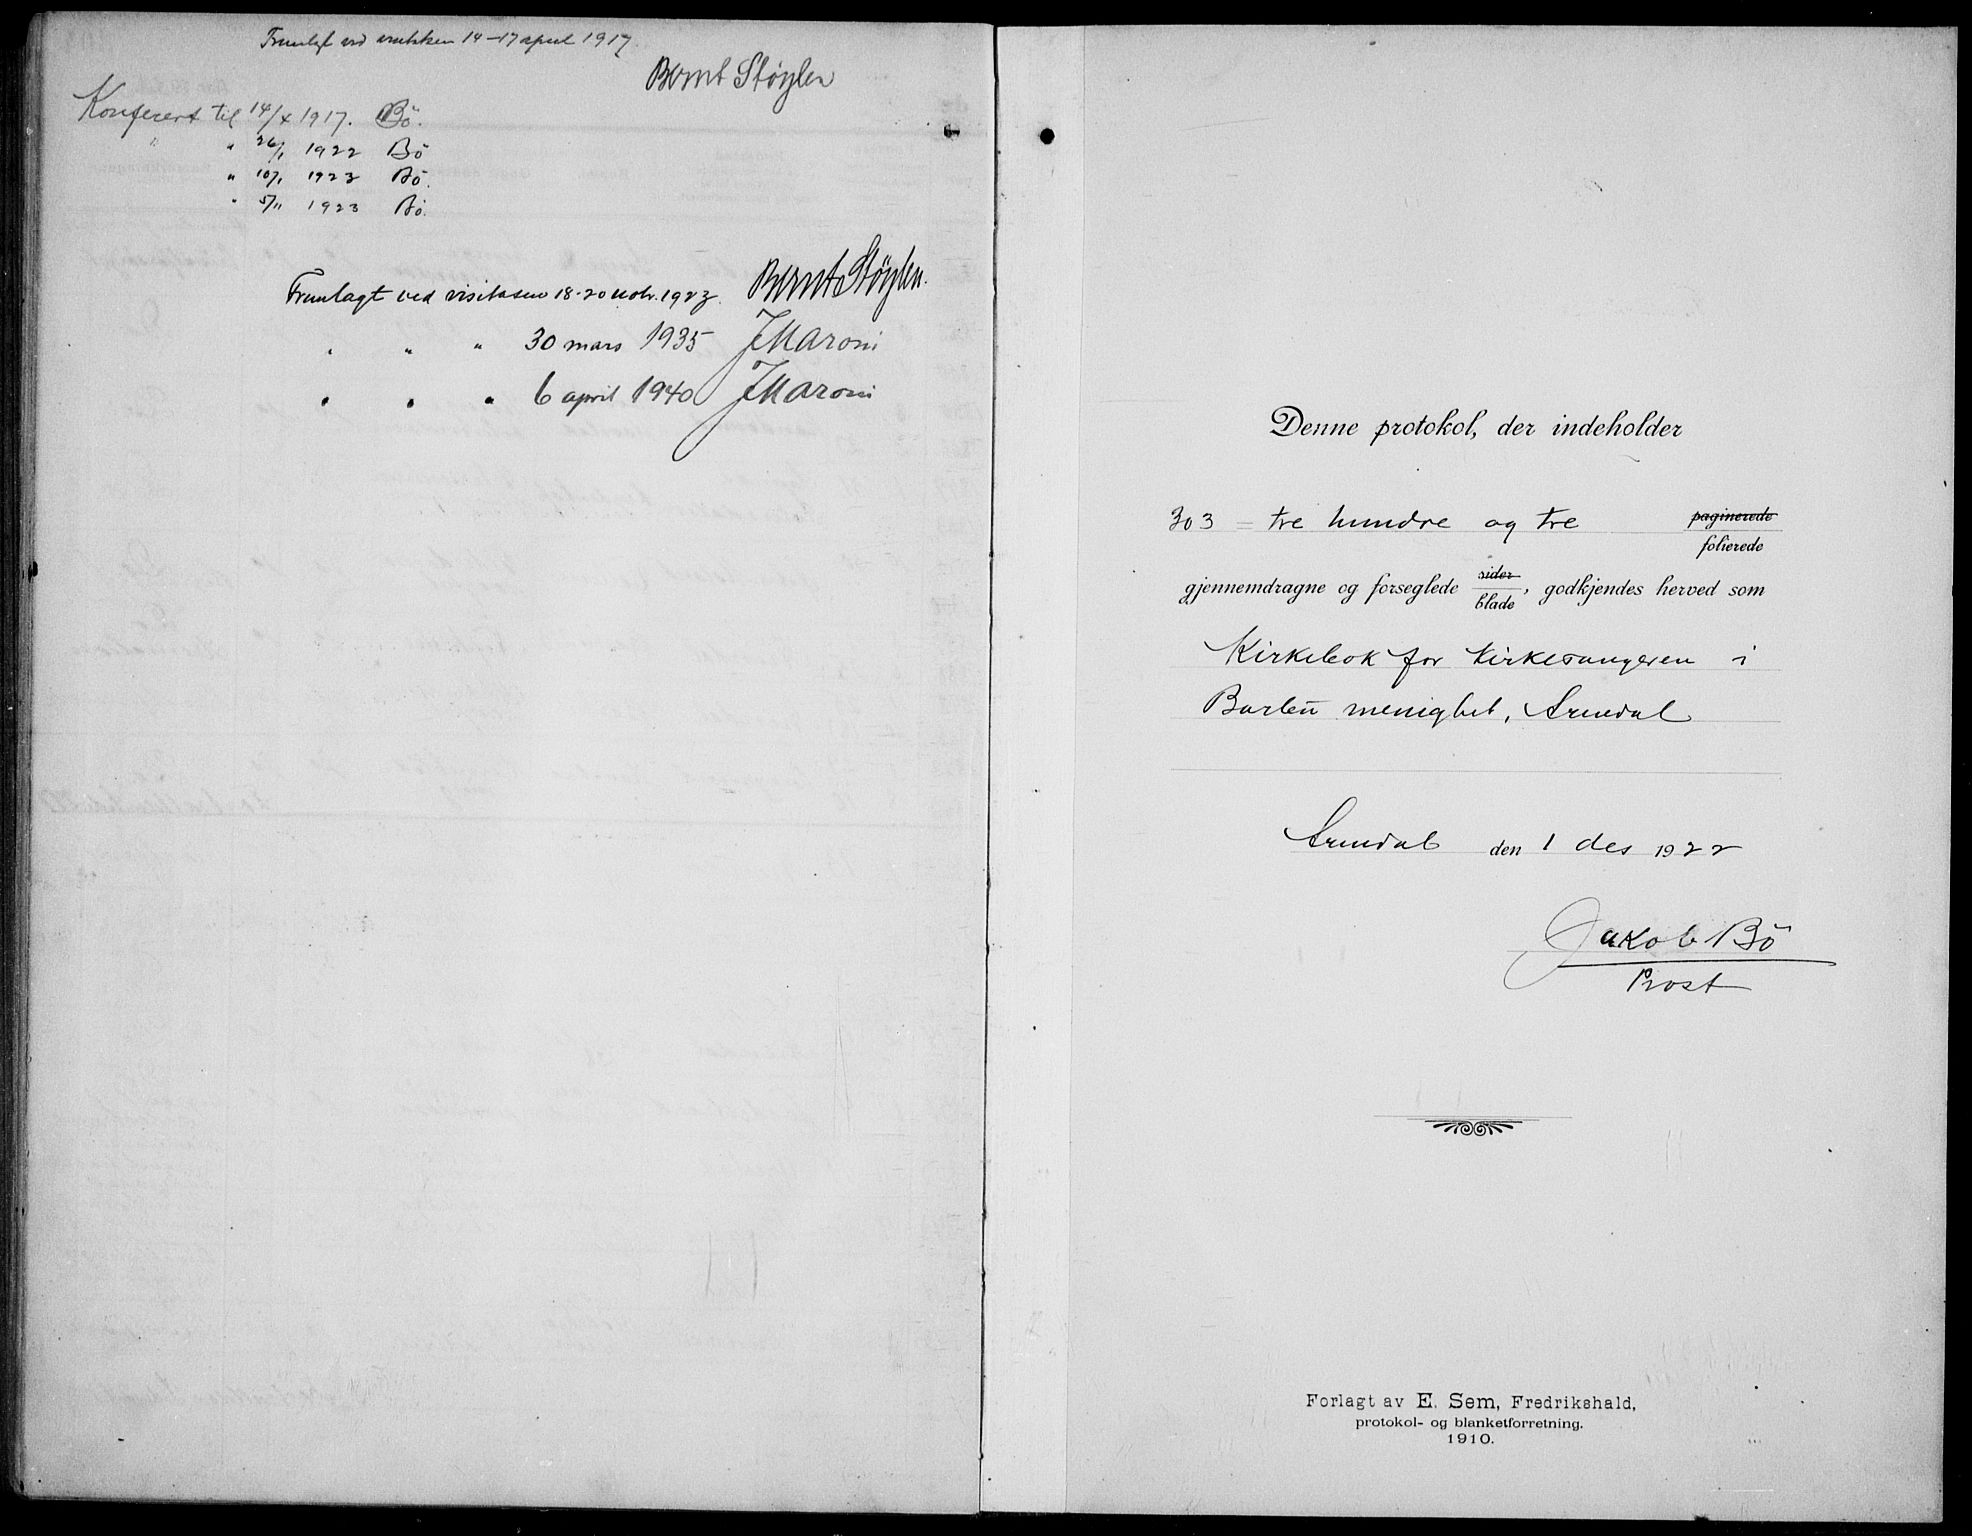 Fremlagt ved visitasen 14–17 april 1917.
Bernt Støylen
Konferert til 14/4 1917. Bö.
" " 26/1 1922 Bö
" 10/1 1923 Bö.
" 5/11 1923 Bö.
Fremlagt ved visitasen 18-20 nobr. 1923. Bernt Støylen.
" " " 30 mars 1935 JMaroni
" " " 6 april 1940 JMaroni
Denne protokol, der indeholder
303 = tre hundre og tre paginerede
folierede
gjennemdragne og forseglede sider
blade, godkjendes herved som
Kirkebok for kirkesangeren i
Barbu menighet, Arendal
Arendal den 1 des 1922
Jakob Bö
Prost
Forlagt av E. Sem, Fredrikshald,
protokol- og blanketforretning.
1910.